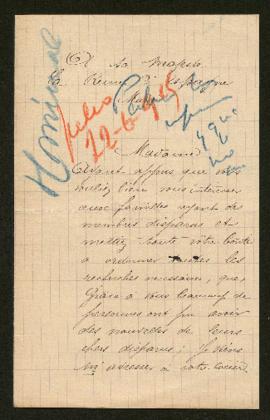 A Sa Majesté
La Reine d'Espagne
Madrid
Nominal
Julio
22-6-915
Madame
Ayant appris que vous
voulez bien vous intéresser
aux familles ayant des
membres disparus et
mettez toute votre bonté
à ordonner toutes les
recherches nécessaires, que,
Grâce à vous beaucoup de
personnes ont pu avoir
des nouvelles de leurs
chers disparus; Je viens
m'adresser à votre